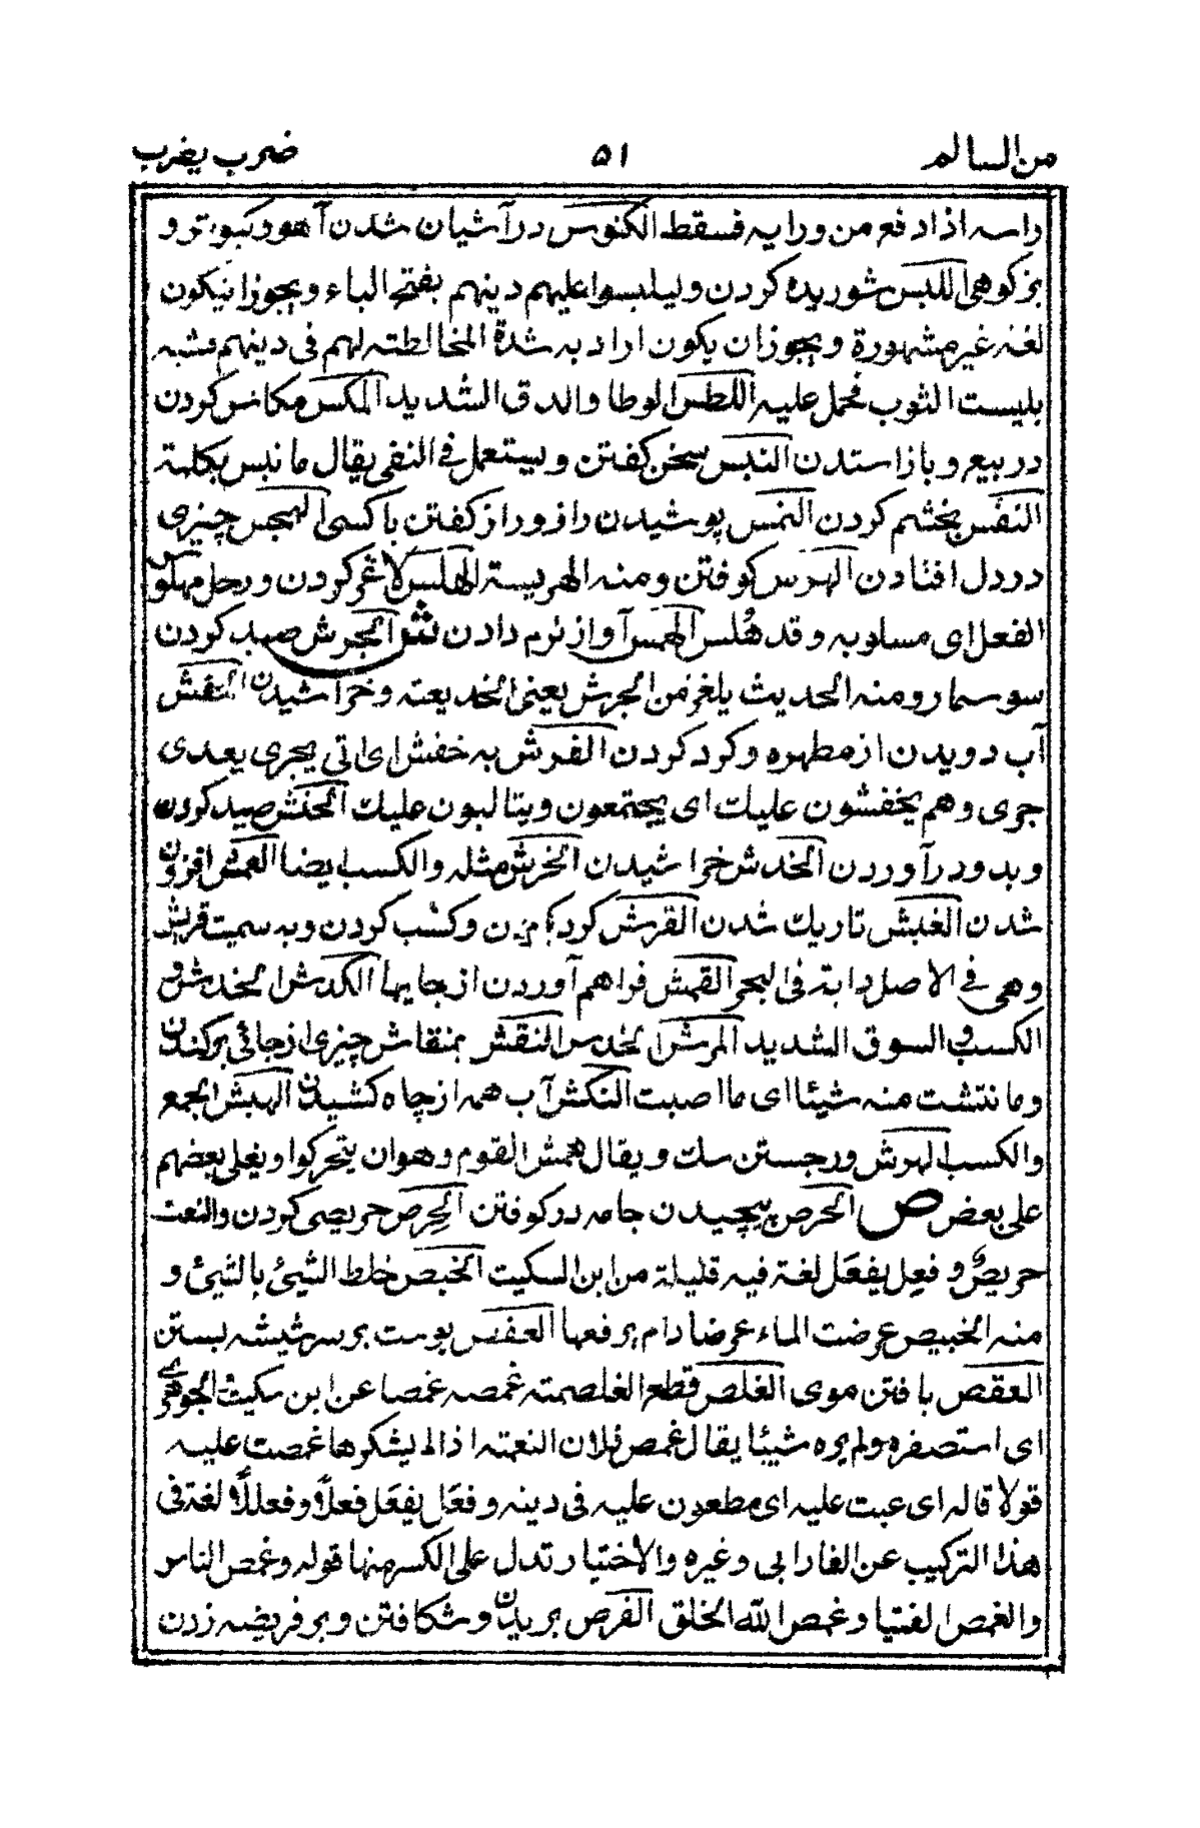 من السالم ٥١ ضرب يضرب
راسه اذا دفع من ورايه فسقط الكنوس در آشيان شدن آهو و كبوتر و
بز كوهى اللبس شوريده كردن وليلبسوا عليهم دينهم بفتح الباء ويجوز ان يكون
لغة غير مشهورة ويجوز ان يكون اراد به شدة المخالطته لهم فى دينهم مشبه
بلبست الثوب فحمل عليه اللطس الوطا والدق الشديد المكس مكاس كردن
در بيع و باز استدن النبس سخن كفتن ويستعمل فى النفى يقال ما نبس بكلمة
النفس بخشم كردن النمس پوشيدن راز و راز كفتن باكسى الهجس چيزى
در دل افتادن الهرس كوفتن ومنه الهريسة الهلس لاغر كردن ورجل مهلوس
الفعل اى مسلوبه وقد هُلس الهمس آواز نرم دادن ش الجرش صيد كردن
سوسمار ومنه الحديث يلغز من الجرش يعنى الخديعته وخراشيدن الخفش
آب دويدن از مطهره و كرد كردن الفرش به خفش اى اتى يجرى يعدى
جرى وهم يخفشون عليك اى يجتمعون ويتالبون عليك الحنش صيد كردن
وبدو در آوردن الخدش خراشيدن الخرش مثله والكسب ايضا العمش افزون
شدن الغبش تاريك شدن القرش كرد كردن وكسب كردن وبه سميت قريش
وهى فى الاصل دابة فى البحر القمش فراهم آوردن از جايها الكدش الخدش و
الكسب فى السوق الشديد المرش الخدس النقش بمنقاش چيزى از جائى بركندن
وما نتشت منه شيئا اى ما اصبت النكش آب همه از چاه كشيدن الهبش الجمع
والكسب الهرش ورجستن سك ويقال همش القوم وهو ان يتحركوا ويغلى بعضهم
على بعض ص الحرص پيچيدن جامه در كوفتن الحِرص حريصى كردن والنعت
حريصٌ و فعِل يفعَل لغة فيه قليلة من ابن السكيت الخبص خلط الشيئ بالشيئ و
منه الخبيص عرضت الماء عرضا دام برفعها العفص پوست بر سر شيشه بستن
العقص بافتن موى الغلص قطع الغلصمته غمصه غمصا عن ابن سكيت الجوهرى
اى استصغره ولم يره شيئا يقال غمص فلان النعته اذا لم يشكرها غمصت عليه
قولا قاله اى عبت عليه اى مطعون عليه فى دينه وفعَل يفعَل فعلاً وفعللاً لغة فى
هذا التركيب عن الفارابى وغيره والاختيار تدل على الكسر منها قوله وغمص الناس
والغمص الفتيا وغمص الله الخلق الفرص بريدن وشكافتن وبر فريضه زدن